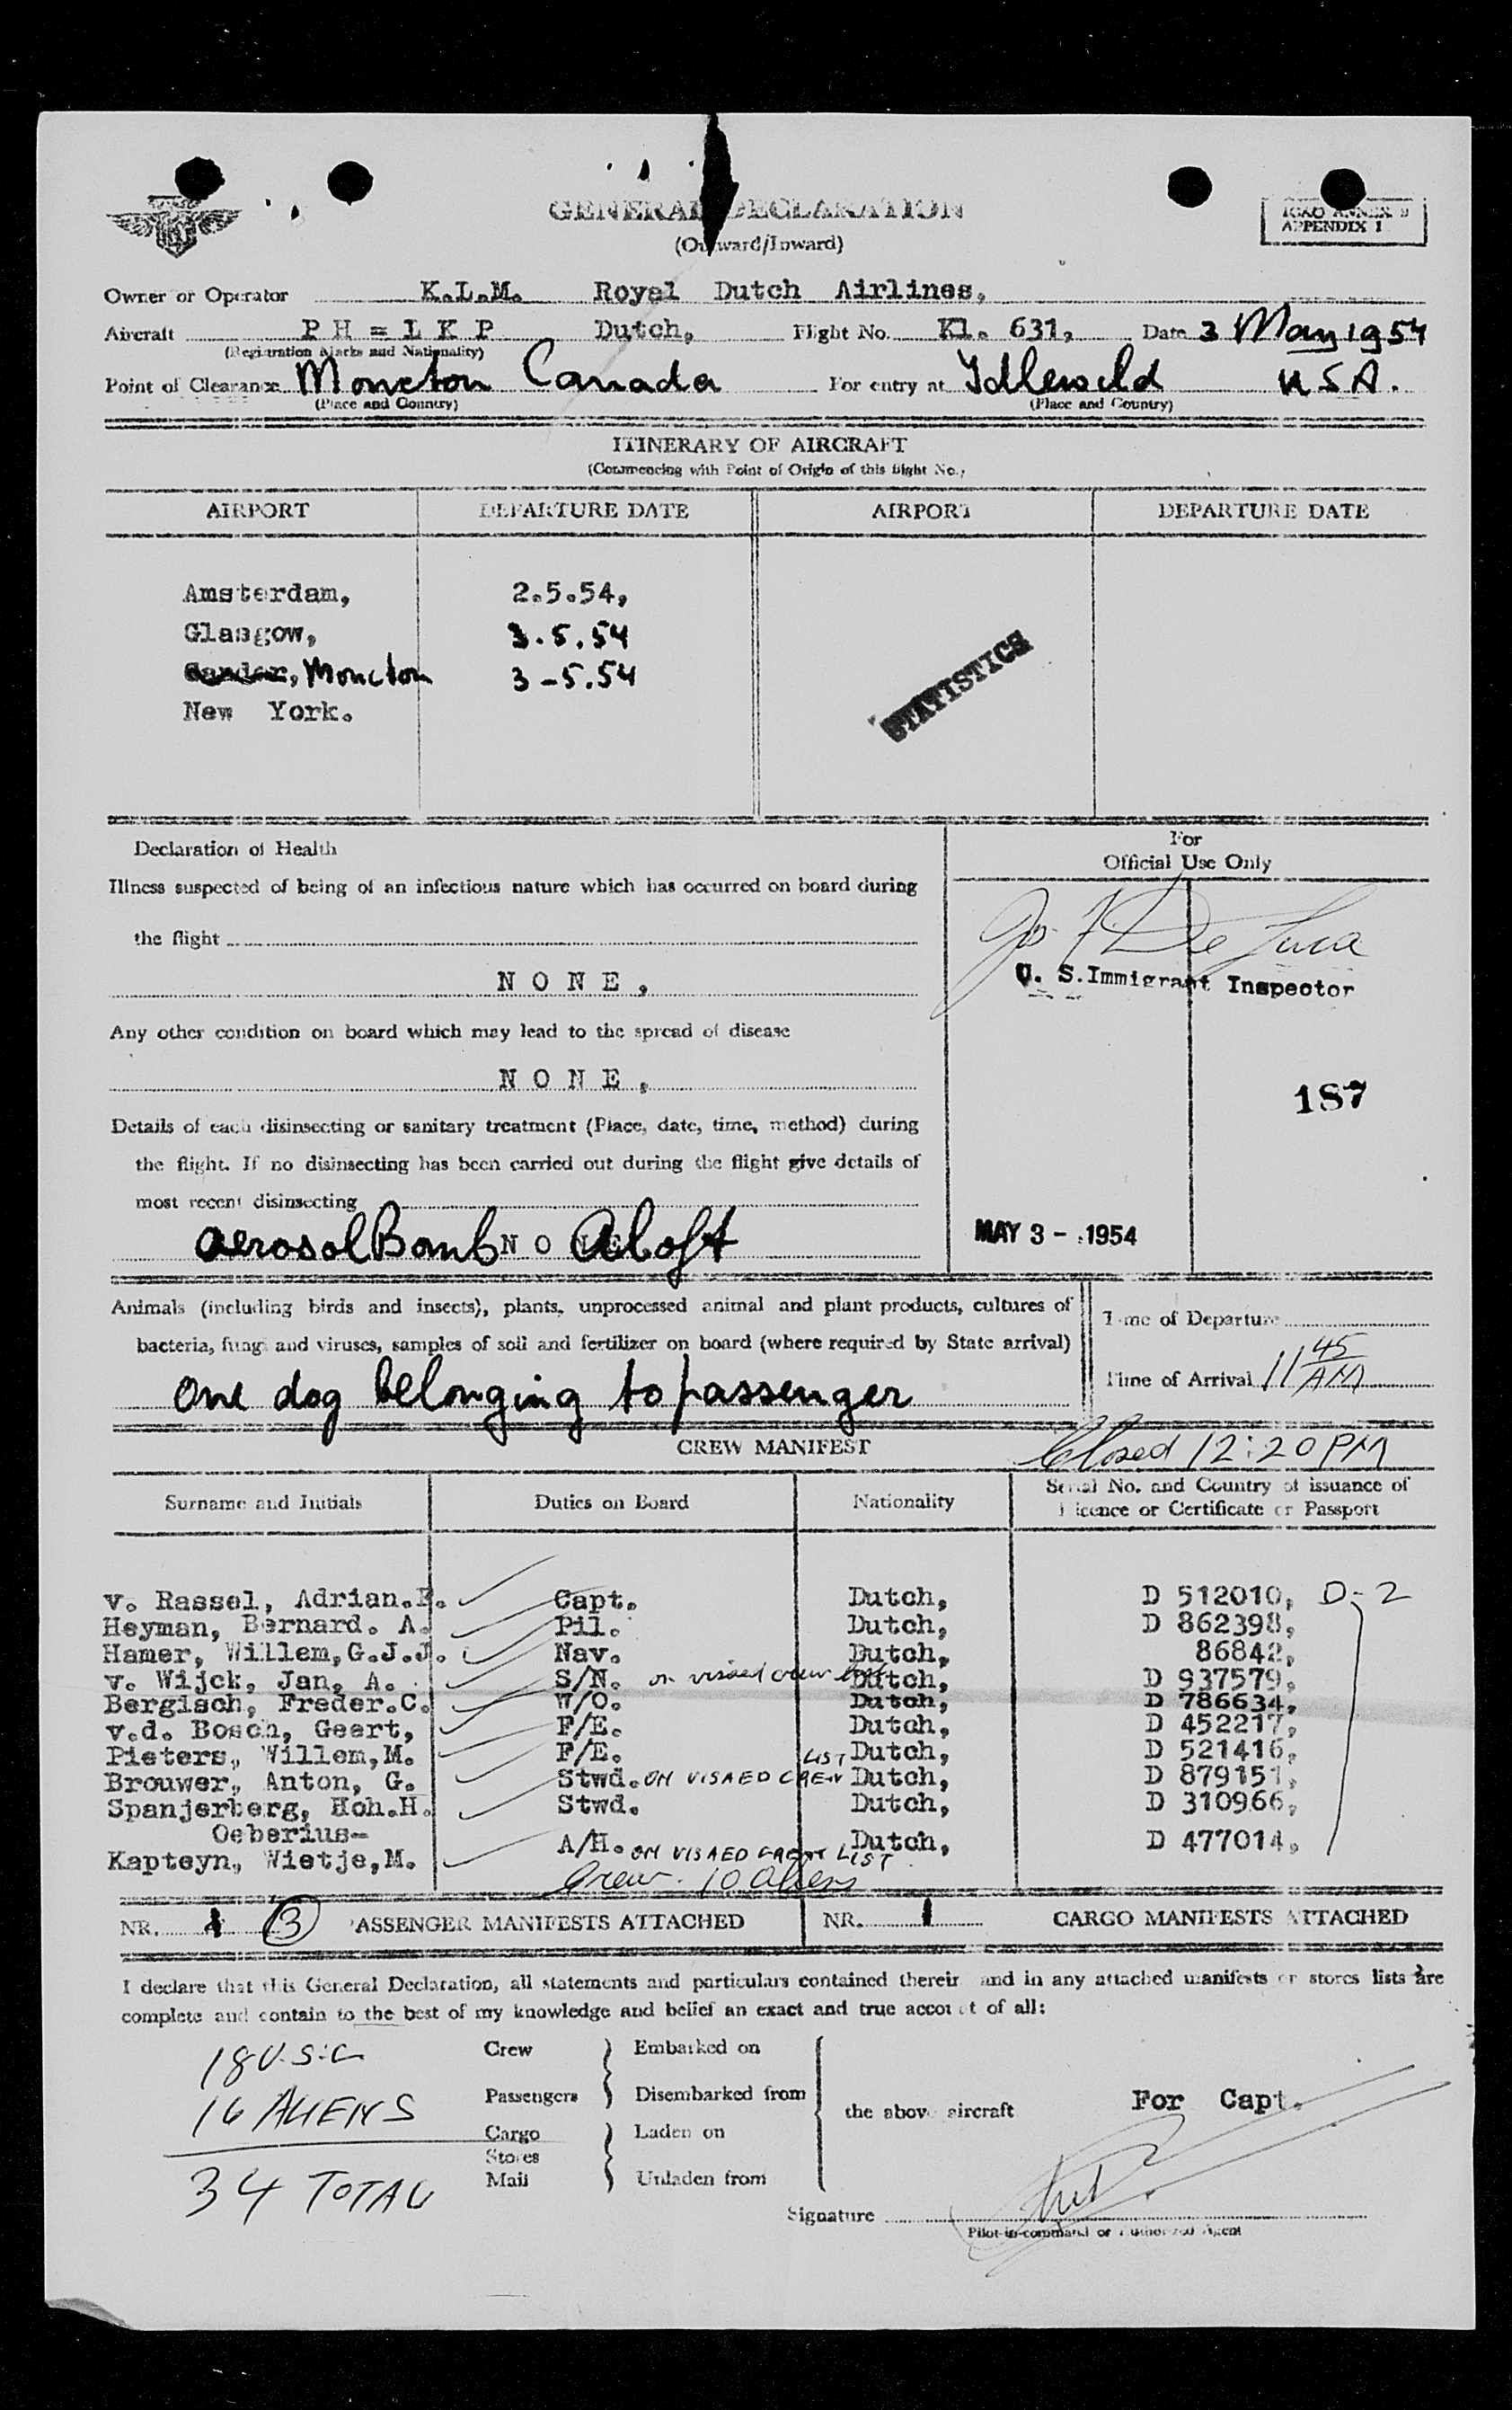 GENERAL DECLARATION
(Outward/Inward)
ICAO ANNEX 9
APPENDIX 1
Owner or Operator K.L.M. Royal Dutch Airlines,
Aircraft P H = L K P Dutch, Flight No. Kl. 631, Date 3 May 1954
(Registration Marks and Nationality)
Point of Clearance Moncton Canada For entry at Idlewild U.S.A.
(Place and Country) (Place and Country)
ITINERARY OF AIRCRAFT
(Commencing with Point of Origin of this flight No.)
AIRPORT DEPARTURE DATE AIRPORT DEPARTURE DATE
Amsterdam, 2.5.54,
Glasgow, 3.5.54
Gander, Moncton 3-5.54
New York.
STATISTICS
Declaration of Health
For
Official Use Only
Illness suspected of being of an infectious nature which has occurred on board during
the flight
Jos F De Luca
U. S. Immigrant Inspector
N O N E ,
Any other condition on board which may lead to the spread of disease
N O N E ,
187
Details of each disinsecting or sanitary treatment (Place, date, time, method) during
the flight. If no disinsecting has been carried out during the flight give details of
most recent disinsecting
aerosol Bomb N O Aloft
MAY 3 - 1954
Animals (including birds and insects), plants, unprocessed animal and plant products, cultures of
bacteria, fungi and viruses, samples of soil and fertilizer on board (where required by State arrival)
one dog belonging to passenger
Time of Departure
Time of Arrival 11 45 AM
CREW MANIFEST Closed 12:20 PM
Surname and Initials Duties on Board Nationality Serial No. and Country of issuance of
Licence or Certificate or Passport
v. Rassel, Adrian.F. Capt. Dutch, D 512010, D-2
Heyman, Bernard. A. Pil. Dutch, D 862398,
Hamer, Willem,G.J.J. Nav. Dutch, 86842,
v. Wijck, Jan, A. S/N. on visaed crew list Dutch, D 937579,
Bergisch, Freder.C. W/O. Dutch, D 786634,
v.d. Bosch, Geert, F/E. Dutch, D 452217,
Pieters, Willem,M. F/E. Dutch, D 521416,
Brouwer, Anton, G. Stwd. ON VISAED CREW LIST Dutch, D 879151,
Spanjerberg, Hoh.H. Stwd. Dutch, D 310966,
Oeberius-
Kapteyn, Wietje,M. A/H. ON VISAED CREW LIST Dutch, D 477014,
Crew. 10 Aliens
NR. 3 PASSENGER MANIFESTS ATTACHED NR. 1 CARGO MANIFESTS ATTACHED
I declare that this General Declaration, all statements and particulars contained therein and in any attached manifests or stores lists are
complete and contain to the best of my knowledge and belief an exact and true account of all:
18 U.S.C
16 ALIENS
34 TOTAL
Crew Embarked on
Passengers Disembarked from
Cargo Laden on
Stores
Mail Unladen from
the above aircraft
For Capt.
Signature
Pilot-in-command or Authorized Agent